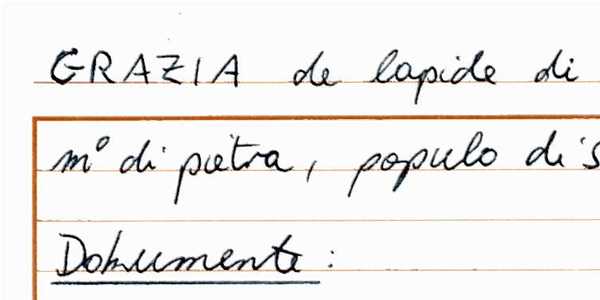 GRAZIA de lapide di
m° di pietra, populo di S
Dokumente: